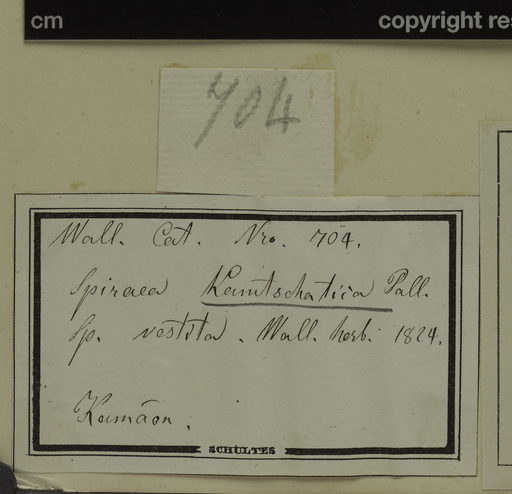 cm copyright res
704
Wall. Cat. Nro. 704.
Spiraea Kamtschatica Pall.
Sp. vestita. Wall. herb. 1824.
Kamāon.
SCHULTES